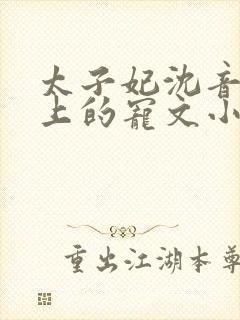 太子妃沈音
上的宠文小
重出江湖本尊